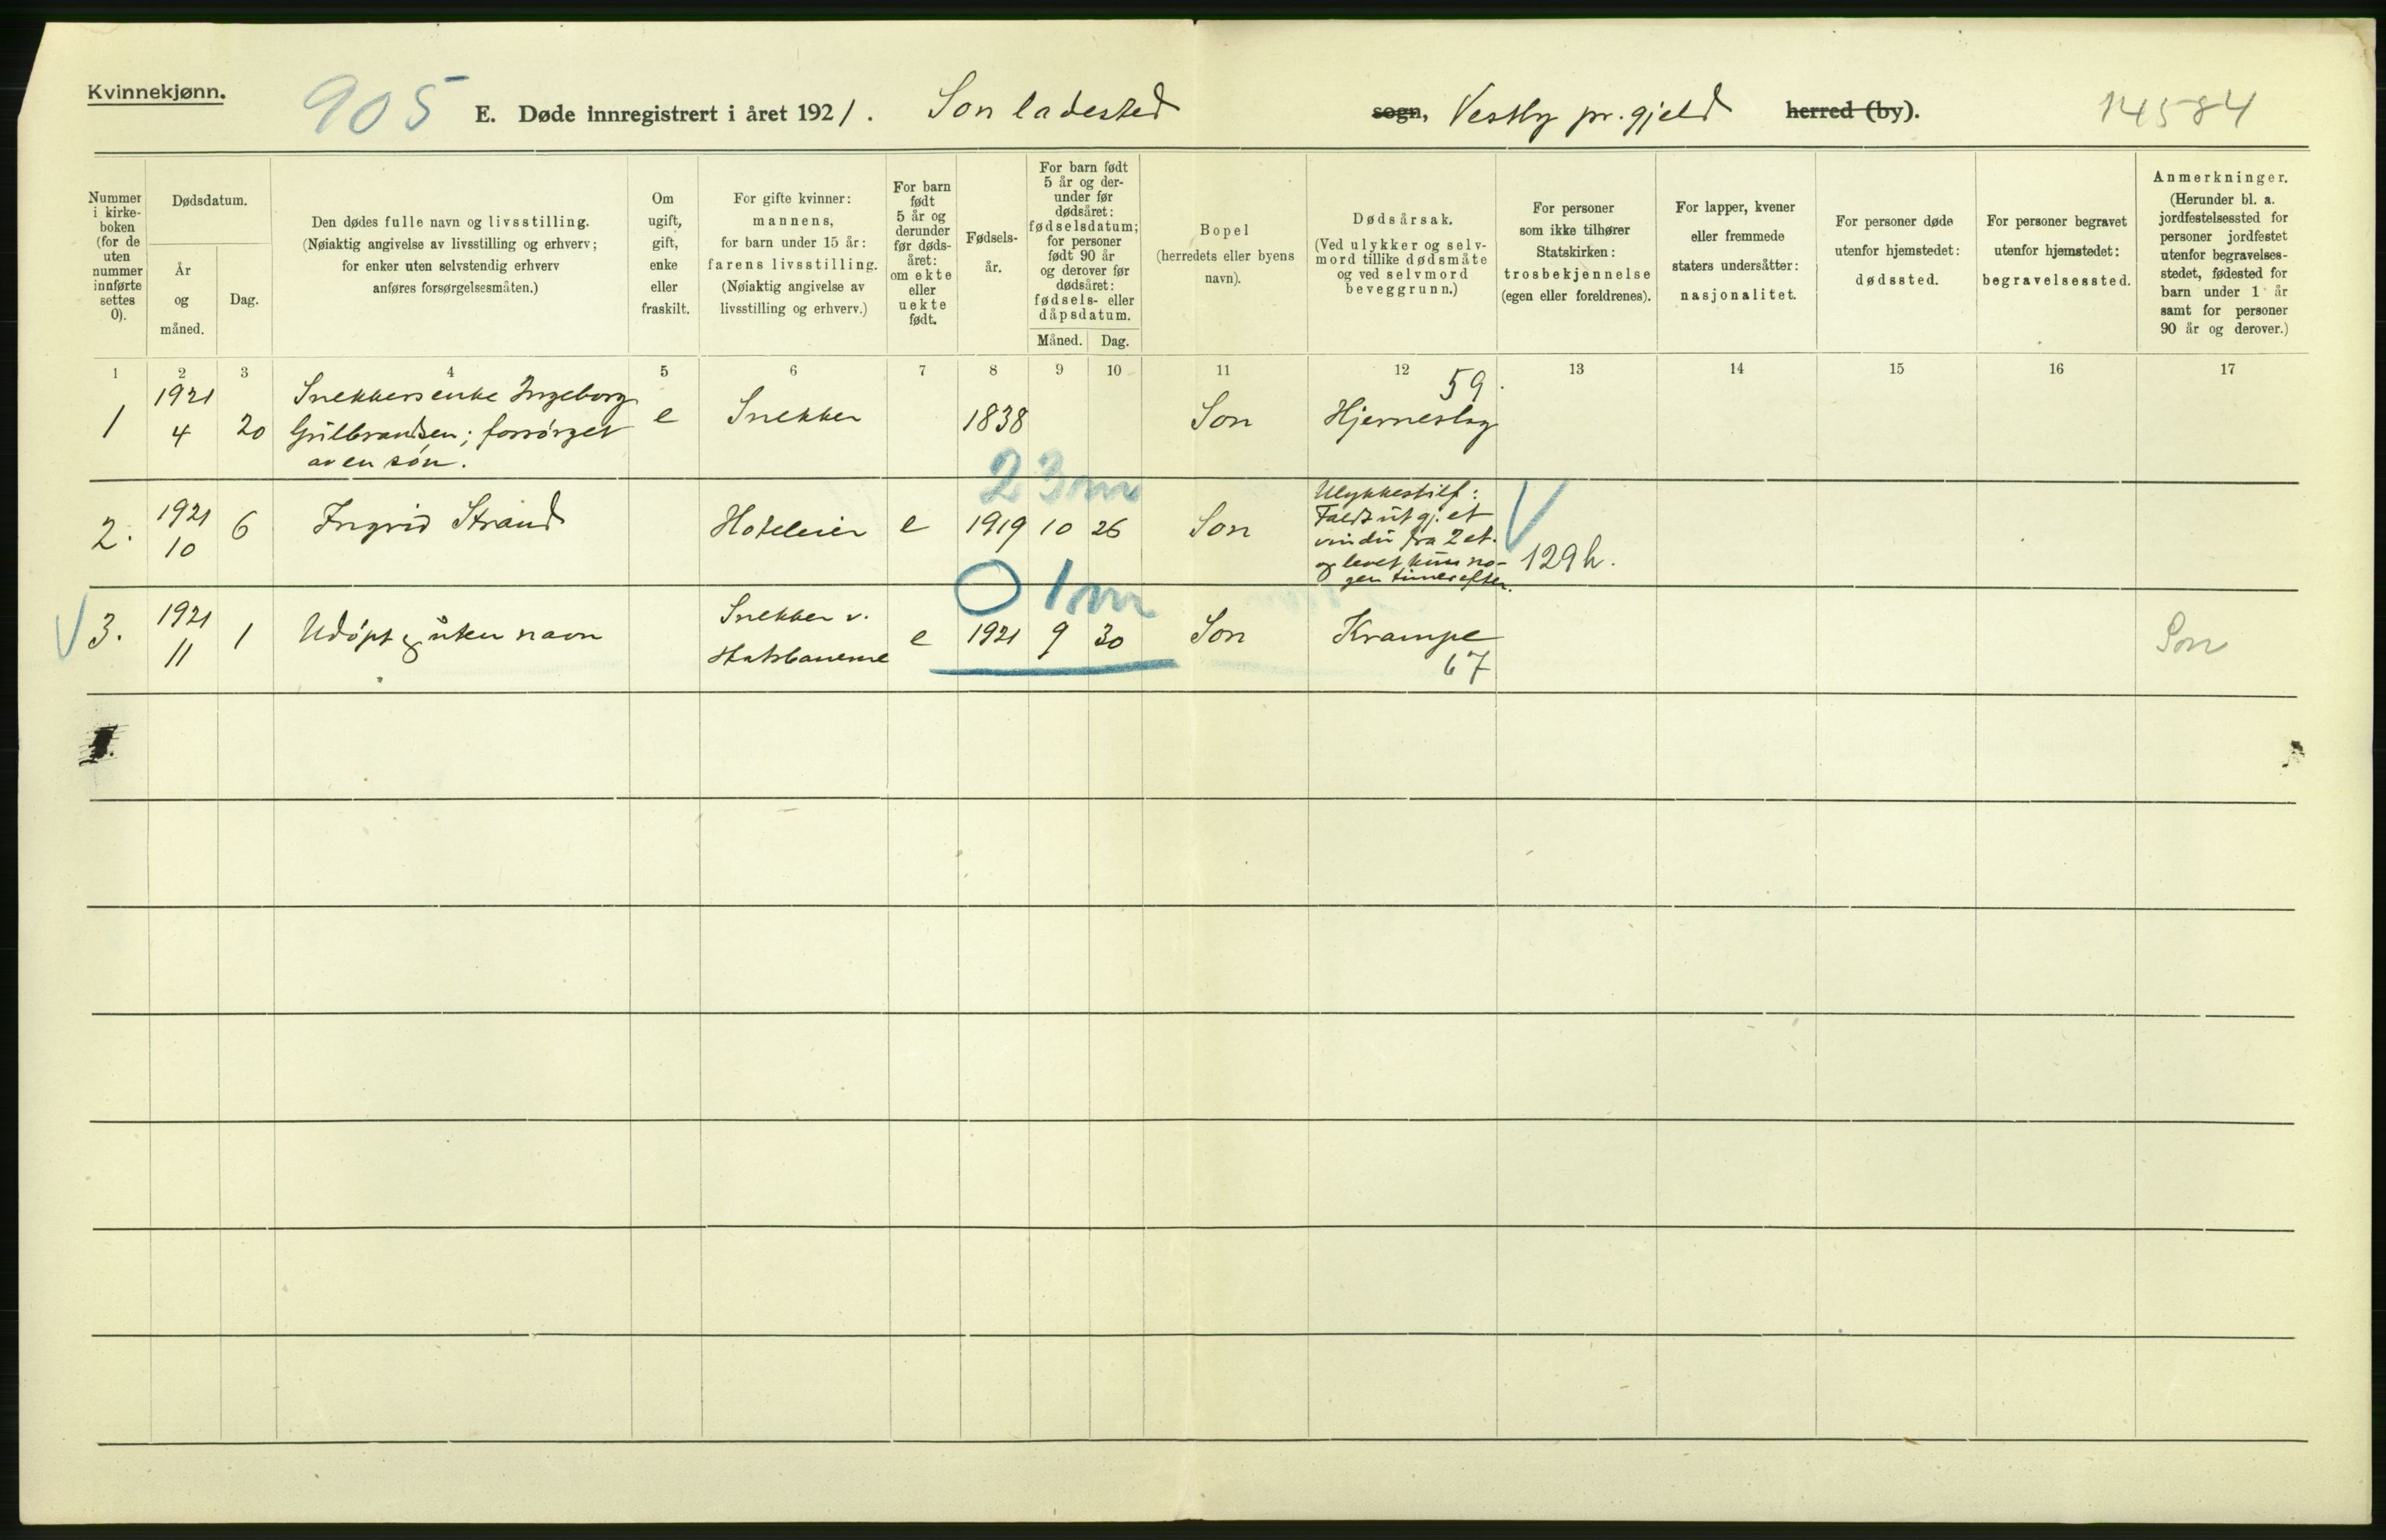 Kvinnekjønn.
905
E. Døde innregistrert i året 1921. Son ladested sogn, Vestby pr.gjeld herred (by).
14584
Nummer i kirkeboken (for de uten nummer innførte settes 0).
Dødsdatum.
År og måned.
Dag.
Den dødes fulle navn og livsstilling.
(Nøiaktig angivelse av livsstilling og erhverv;
for enker uten selvstendig erhverv
anføres forsørgelsesmåten.)
Om ugift, gift, enke eller fraskilt.
For gifte kvinner:
mannens,
for barn under 15 år:
farens livsstilling.
(Nøiaktig angivelse av
livsstilling og erhverv.)
For barn født 5 år og derunder før dødsåret: om ekte eller uekte født.
Fødselsår.
For barn født 5 år og derunder før dødsåret: fødselsdatum; for personer født 90 år og derover før dødsåret: fødsels- eller dåpsdatum.
Måned. Dag.
Bopel
(herredets eller byens
navn).
Dødsårsak.
(Ved ulykker og selvmord tillike dødsmåte og ved selvmord beveggrunn.)
For personer
som ikke tilhører
Statskirken:
trosbekjennelse
(egen eller foreldrenes).
For lapper, kvener
eller fremmede
staters undersåtter:
nasjonalitet.
For personer døde
utenfor hjemstedet:
dødssted.
For personer begravet
utenfor hjemstedet:
begravelsessted.
Anmerkninger.
(Herunder bl. a.
jordfestelsessted for
personer jordfestet
utenfor begravelses-
stedet, fødested for
barn under 1 år
samt for personer
90 år og derover.)
1 2 3 4 5 6 7 8 9 10 11 12 13 14 15 16 17
1 1921 4 20 Snekkersenke Ingeborg
Gulbrandsen; forsørget
av en søn.
e Snekker 1838 Son Hjerneslag 59.
23 m
2. 1921 10 6 Ingrid Strand Hoteleier e 1919 10 26 Son
Ulykkestilf:
Faldt ut gj. et
vindu fra 2 et.
og levet kun no-
gen timer efter.
129 h.
0 1 m
3. 1921 11 1 Udøpt & uten navn
Snekker v.
Statsbanerne
e 1921 9 30 Son Krampe
67
Son